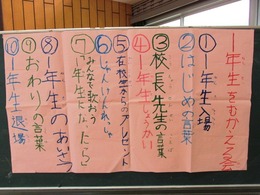 一年生をむかえる会
①一年生入場
②はじめの言葉
③校長先生の言葉
④一年生しょうかい
⑤在校生からのプレゼント
⑥じゃんけんれっしゃ
⑦みんなで歌おう
「一年生になったら」
⑧一年生のあいさつ
⑨おわりの言葉
⑩一年生退場